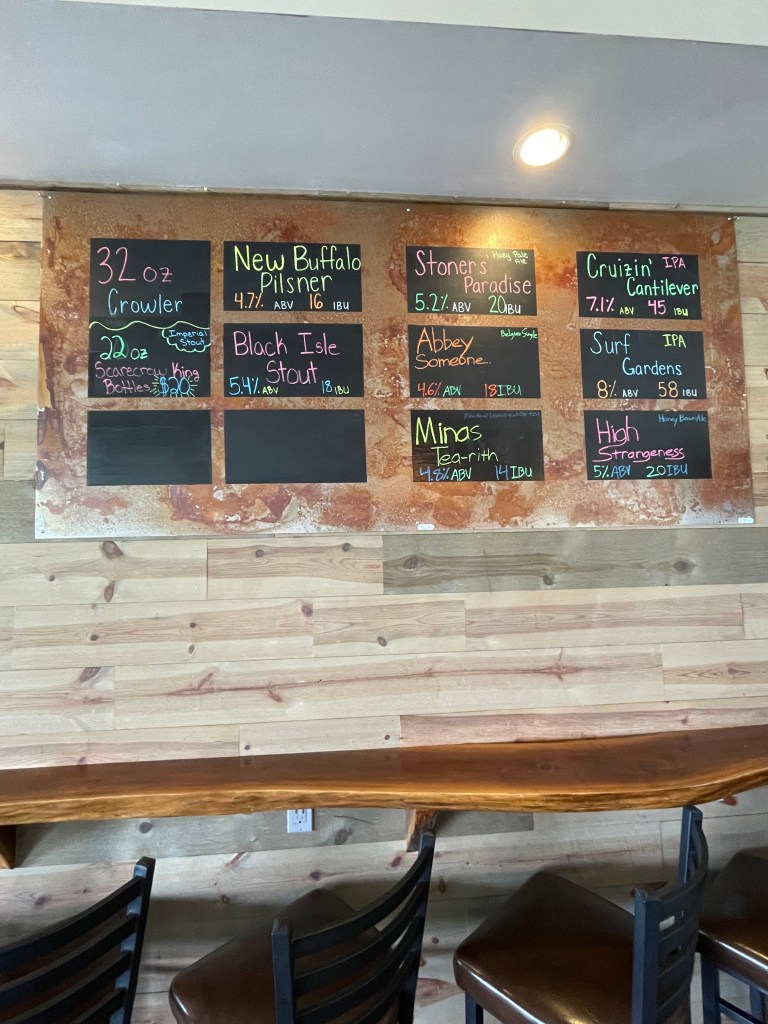 32 oz
Crowler
Imperial
Stout
22 oz
Scarecrow King
Bottles $20
New Buffalo
Pilsner
4.7% ABV 16 IBU
Black Isle
Stout
5.4% ABV 18 IBU
Hazy Pale
Ale
Stoner's
Paradise
5.2% ABV 20 IBU
Belgian Single
Abbey
Someone...
4.6% ABV 18 IBU
Minas
Tea-rith
4.8% ABV 14 IBU
Cruizin' IPA
Cantilever
7.1% ABV 45 IBU
Surf IPA
Gardens
8% ABV 58 IBU
Honey Brown Ale
High
Strangeness
5% ABV 20 IBU